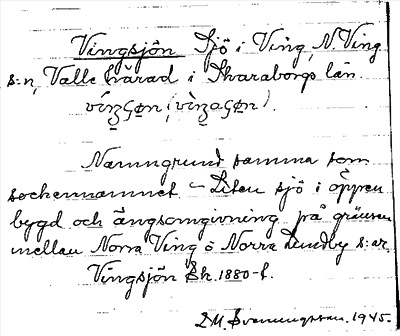 Vingsjön Sjö i Ving, N. Ving
s:n, Valle härad i Skaraborgs län.
Namngrund samma som
sockennamnet – Liten sjö i öppen
bygd och ängsomgivning på gränsen
mellan Norra Ving o Norra Lundby s:ar.
Vingsjön Ek. 1880-t.
M. Svenungsson. 1945.